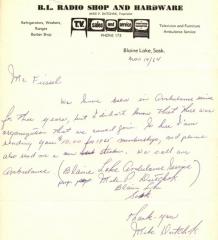 B.L. RADIO SHOP AND HARDWARE
MIKE P. DUTCHAK, Proprietor
Refrigerators, Washers,
Ranges
Barber Shop
T.V. sales and service
PHONE 173
Television and Furniture
Ambulance Service
Blaine Lake, Sask.
Nov 14/64
Mr. Fissel
We have been in Ambulance service
for three years, but I didn't know that there was
organization that we could join. So here I'm
sending you 10.00 for 1965 membership, and please
also send me a . We call our
Ambulance (Blaine Lake Ambulance Service)
Mike P. Dutchak
Blaine Lake
Sask
Thank you
Mike Dutchak